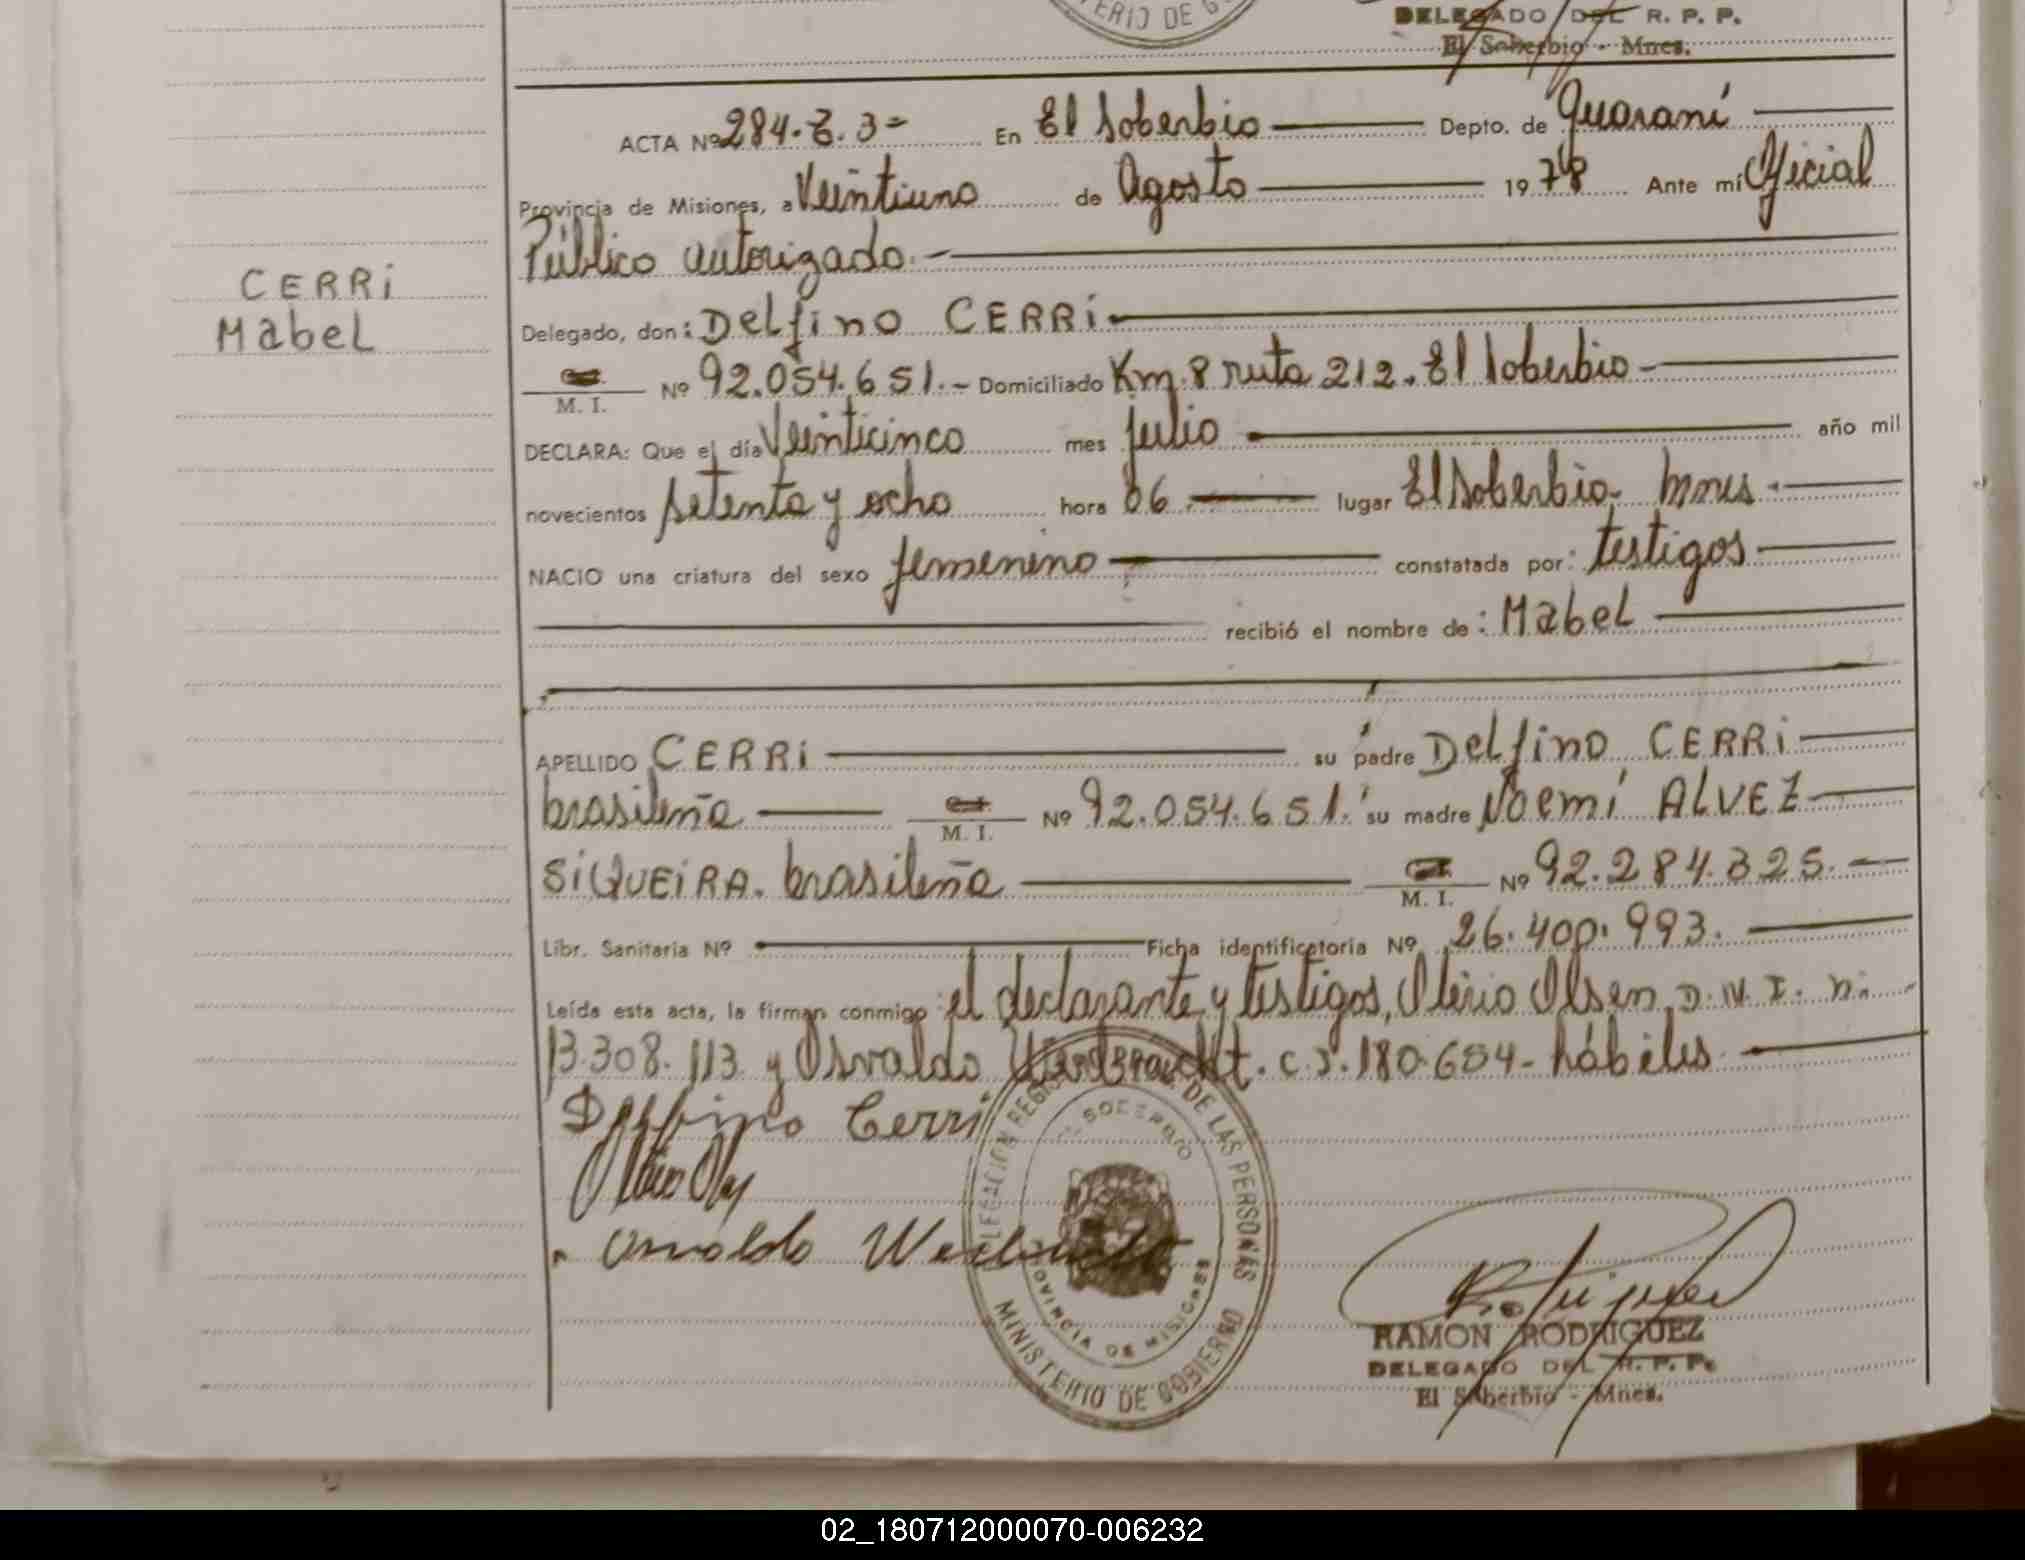 TERIO DE G
DELEGADO DEL R. P. P.
El Soberbio - Mnes.
ACTA Nº 284. T. 3= En El Soberbio Depto. de Guaraní
Provincia de Misiones, a Veintiuno de Agosto 1978 Ante mí Oficial
Público autorizado.-
CERRi
MabeL
Delegado, don: DeLfino CERRi
M. I. Nº 92.054.651.- Domiciliado Km. 8 ruta 212. El Soberbio-
DECLARA: Que el día Veinticinco mes julio año mil
novecientos setenta y ocho hora 06 lugar El Soberbio- Mnes.
NACIO una criatura del sexo femenino constatada por: testigos
recibió el nombre de: MabeL
APELLIDO CERRi su padre DeLfino CERRi
brasileña M. I. Nº 92.054.651. su madre Noemí ALVEZ
SiQUEiRA. brasileña M. I. Nº 92.284.325.-
Libr. Sanitaria Nº Ficha identificatoria Nº 26.400.993.
Leída esta acta, la firman conmigo el declarante y testigos, Olerio Olsen D.N.I. n:
13.308.113 y Osvaldo C.I. 180.654- hábiles
Delfino Cerri
Osvaldo
DELEGACION REGI DE LAS PERSONAS
EL SOBERBIO
PROVINCIA DE MISIONES
MINISTERIO DE GOBIERNO
Rodriguez
RAMON RODRIGUEZ
DELEGADO DEL R. P. P.
El Soberbio - Mnes.
02_180712000070-006232